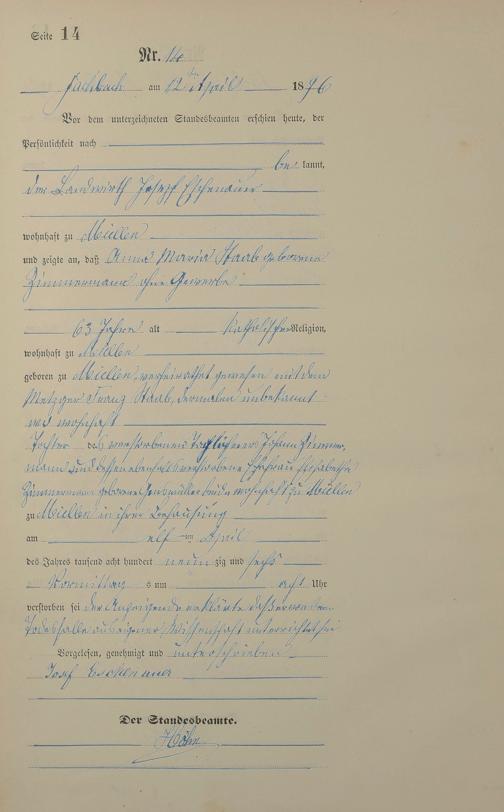 Seite 14
Nr. 14
Fachbach am 12 ten April 1896
Vor dem unterzeichneten Standesbeamten erschien heute, der
Persönlichkeit nach
be kannt,
der Landwirth Josef Eschenauer
wohnhaft zu Miellen
und zeigte an, daß Anna Maria Staab geborene
Zimmermann ohne Gewerbe
63 Jahre alt katholischer Religion,
wohnhaft zu Miellen
geboren zu Miellen, verheirathet gewesen mit dem
Metzger Franz Staab, dermalen unbekannt
wo wohnhaft
Tochter des verstorbenen Taglöhners Johann Zimmer-
mann und dessen ebenfalls verstorbene Ehefrau Elisabetha
Zimmermann geborene beide wohnhaft zu Miellen
zu Miellen in ihrer Behausung
am elf ten April
des Jahres tausend acht hundert neun zig und sechs
Vormittags um acht Uhr
verstorben sei der Anzeigende erklärte daß er von dem
Todesfalle aus eigener Wissenschaft unterrichtet sei
Vorgelesen, genehmigt und unterschrieben
Josef Eschenauer
Der Standesbeamte.
Höhn